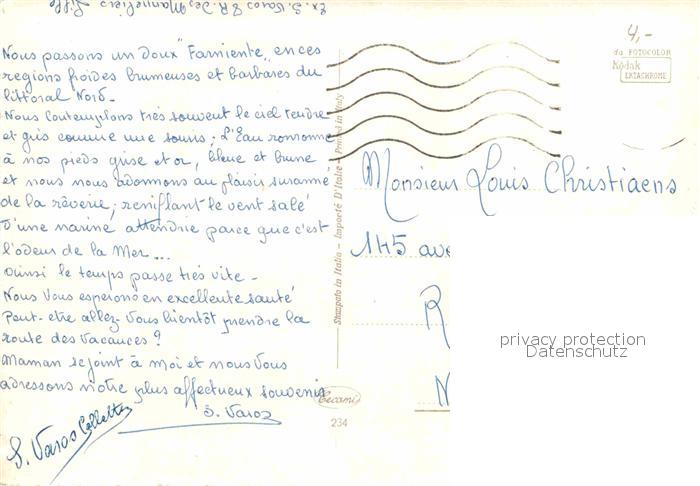 Ex. S. Varos & R. Des Manneliers Lille
Nous passons un doux "Farniente" en ces
regions froides brumeuses et barbares du
littoral Nord -
Nous contemplons très souvent le ciel tendre
et gris comme une souris ; l'Eau ronronne
à nos pieds grise et or, bleue et brune
et nous nous adonnons au plaisir suranné
de la rêverie, reniflant le vent salé
d'une narine attendrie parce que c'est
l'odeur de la Mer...
ainsi le temps passe très vite -
Nous Vous esperons en excellente santé
Peut-etre allez-Vous bientôt prendre la
route des Vacances ?
Maman se joint à moi et nous Vous
adressons notre plus affectueux souvenir
S. Varos
S. Varos Collette
Stampato in Italia - Importé D'Italie - Printed in Italy
Cecami
234
4,-
da FOTOCOLOR
Kodak
EKTACHROME
Monsieur Louis Christiaens
145 ave
R
N
privacy protection
Datenschutz